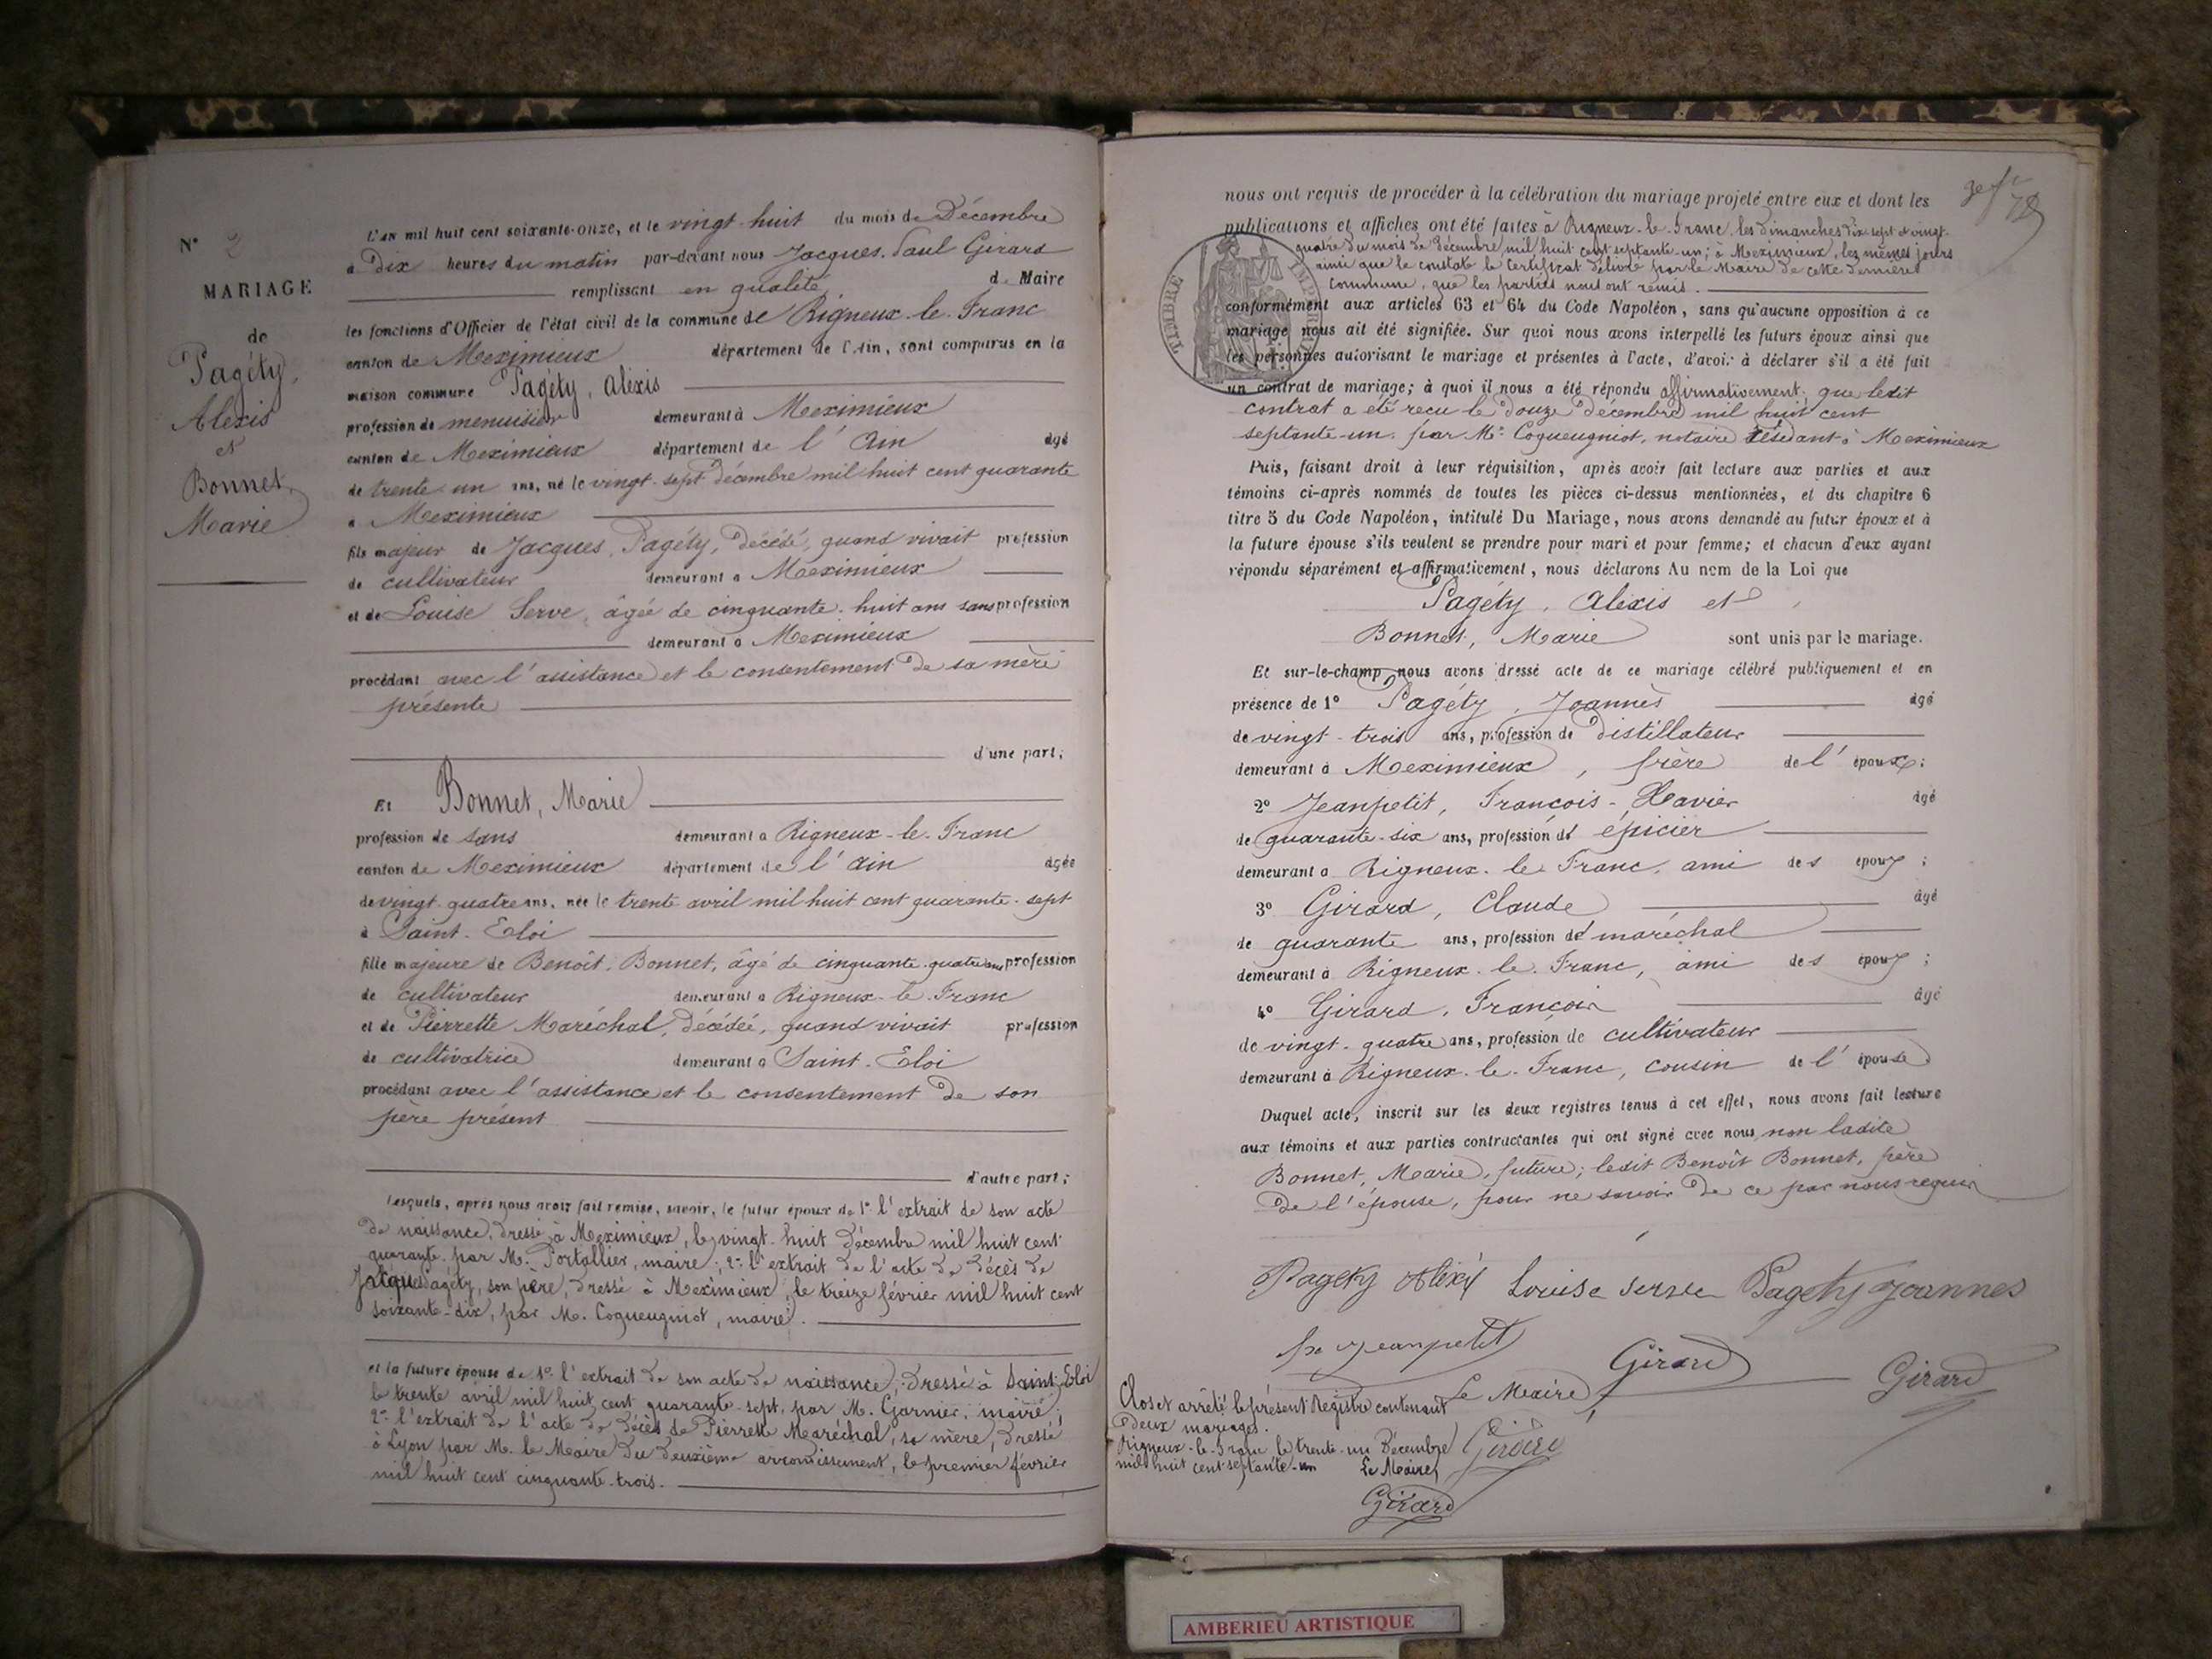 N° 2
MARIAGE
de
Pagéty,
Alexis
et
Bonnet,
Marie
L'AN mil huit cent soixante-onze, et le vingt-huit du mois de Décembre
à Dix heures du matin par-devant nous Jacques. Paul Girard
remplissant en qualité de Maire
les fonctions d'Officier de l'état civil de la commune de Rigneux-le-Franc
canton de Meximieux département de l'Ain, sont comparus en la
maison commune Pagéty, Alexis
profession de menuisier demeurant à Meximieux
canton de Meximieux département de l'Ain âgé
de trente un ans, né le vingt-sept décembre mil huit cent quarante
à Meximieux
fils majeur de Jacques, Pagéty, décédé, quand vivait profession
de cultivateur demeurant à Meximieux
et de Louise Serve, âgée de cinquante-huit ans sans profession
demeurant à Meximieux
procédant avec l'assistance et le consentement de sa mère
présente
d'une part;
Et Bonnet, Marie
profession de sans demeurant à Rigneux-le-Franc
canton de Meximieux département de l'Ain âgée
de vingt-quatre ans, née le trente avril mil huit cent quarante-sept
à Saint-Eloi
fille majeure de Benoît, Bonnet, âgé de cinquante-quatre ans profession
de cultivateur demeurant à Rigneux-le-Franc
et de Pierrette Maréchal, décédée, quand vivait profession
de cultivatrice demeurant à Saint-Eloi
procédant avec l'assistance et le consentement de son
père présent
d'autre part;
Lesquels, après nous avoir fait remise, savoir, le futur époux de 1° l'extrait de son acte
de naissance, dressé à Meximieux, le vingt-huit décembre mil huit cent
quarante par M. Portallier, maire; 2° l'extrait de l'acte de décès de
Jacques Pagéty, son père, dressé à Meximieux, le treize février mil huit cent
soixante-dix, par M. Cogueugniot, maire.
et la future épouse de 1° l'extrait de son acte de naissance, dressé à Saint-Eloi
le trente avril mil huit cent quarante-sept, par M. Garnier, maire;
2° l'extrait de l'acte de décès de Pierrette Maréchal, sa mère, dressé
à Lyon par M. le Maire du deuxième arrondissement, le premier février
mil huit cent cinquante-trois.
nous ont requis de procéder à la célébration du mariage projeté entre eux et dont les
publications et affiches ont été faites à Rigneux-le-Franc les dimanches dix-sept & vingt-
quatre du mois de décembre mil huit cent septante-un; à Meximieux, les mêmes jours
ainsi que le constate le certificat délivré par le Maire de cette dernière
commune, que les parties nous ont remis.
TIMBRE IMPERIAL
conformément aux articles 63 et 64 du Code Napoléon, sans qu'aucune opposition à ce
mariage nous ait été signifiée. Sur quoi nous avons interpellé les futurs époux ainsi que
les personnes autorisant le mariage et présentes à l'acte, d'avoir à déclarer s'il a été fait
un contrat de mariage; à quoi il nous a été répondu affirmativement, que ledit
contrat a été reçu le Douze Décembre mil huit cent
septante-un, par Me Cogueugniot, notaire résidant à Meximieux
Puis, faisant droit à leur réquisition, après avoir fait lecture aux parties et aux
témoins ci-après nommés de toutes les pièces ci-dessus mentionnées, et du chapitre 6
titre 5 du Code Napoléon, intitulé Du Mariage, nous avons demandé au futur époux et à
la future épouse s'ils veulent se prendre pour mari et pour femme; et chacun d'eux ayant
répondu séparément et affirmativement, nous déclarons Au nom de la Loi que
Pagéty, Alexis et
Bonnet, Marie sont unis par le mariage.
Et sur-le-champ nous avons dressé acte de ce mariage célébré publiquement et en
présence de 1° Pagéty, Joannès âgé
de vingt-trois ans, profession de distillateur
demeurant à Meximieux, frère de l'époux;
2° Jeanpetit, François-Xavier âgé
de quarante-six ans, profession d' épicier
demeurant à Rigneux-le-Franc, ami des époux;
3° Girard, Claude âgé
de quarante ans, profession de maréchal
demeurant à Rigneux-le-Franc, ami des époux;
4° Girard, François âgé
de vingt-quatre ans, profession de cultivateur
demeurant à Rigneux-le-Franc, cousin de l'épouse
Duquel acte, inscrit sur les deux registres tenus à cet effet, nous avons fait lecture
aux témoins et aux parties contractantes qui ont signé avec nous, non ladite
Bonnet, Marie, future; ledit Benoît Bonnet, père
de l'épouse, pour ne savoir de ce par nous requis
Pagety Alexis Louise Serve Pagety Joannes
fx Jeanpetit Girard Girard
Le Maire,
Girard
Clos et arrêté le présent Registre contenant
Deux mariages.
Rigneux-le-Franc le trente-un Décembre
mil huit cent septante-un
Le Maire,
Girard
AMBERIEU ARTISTIQUE